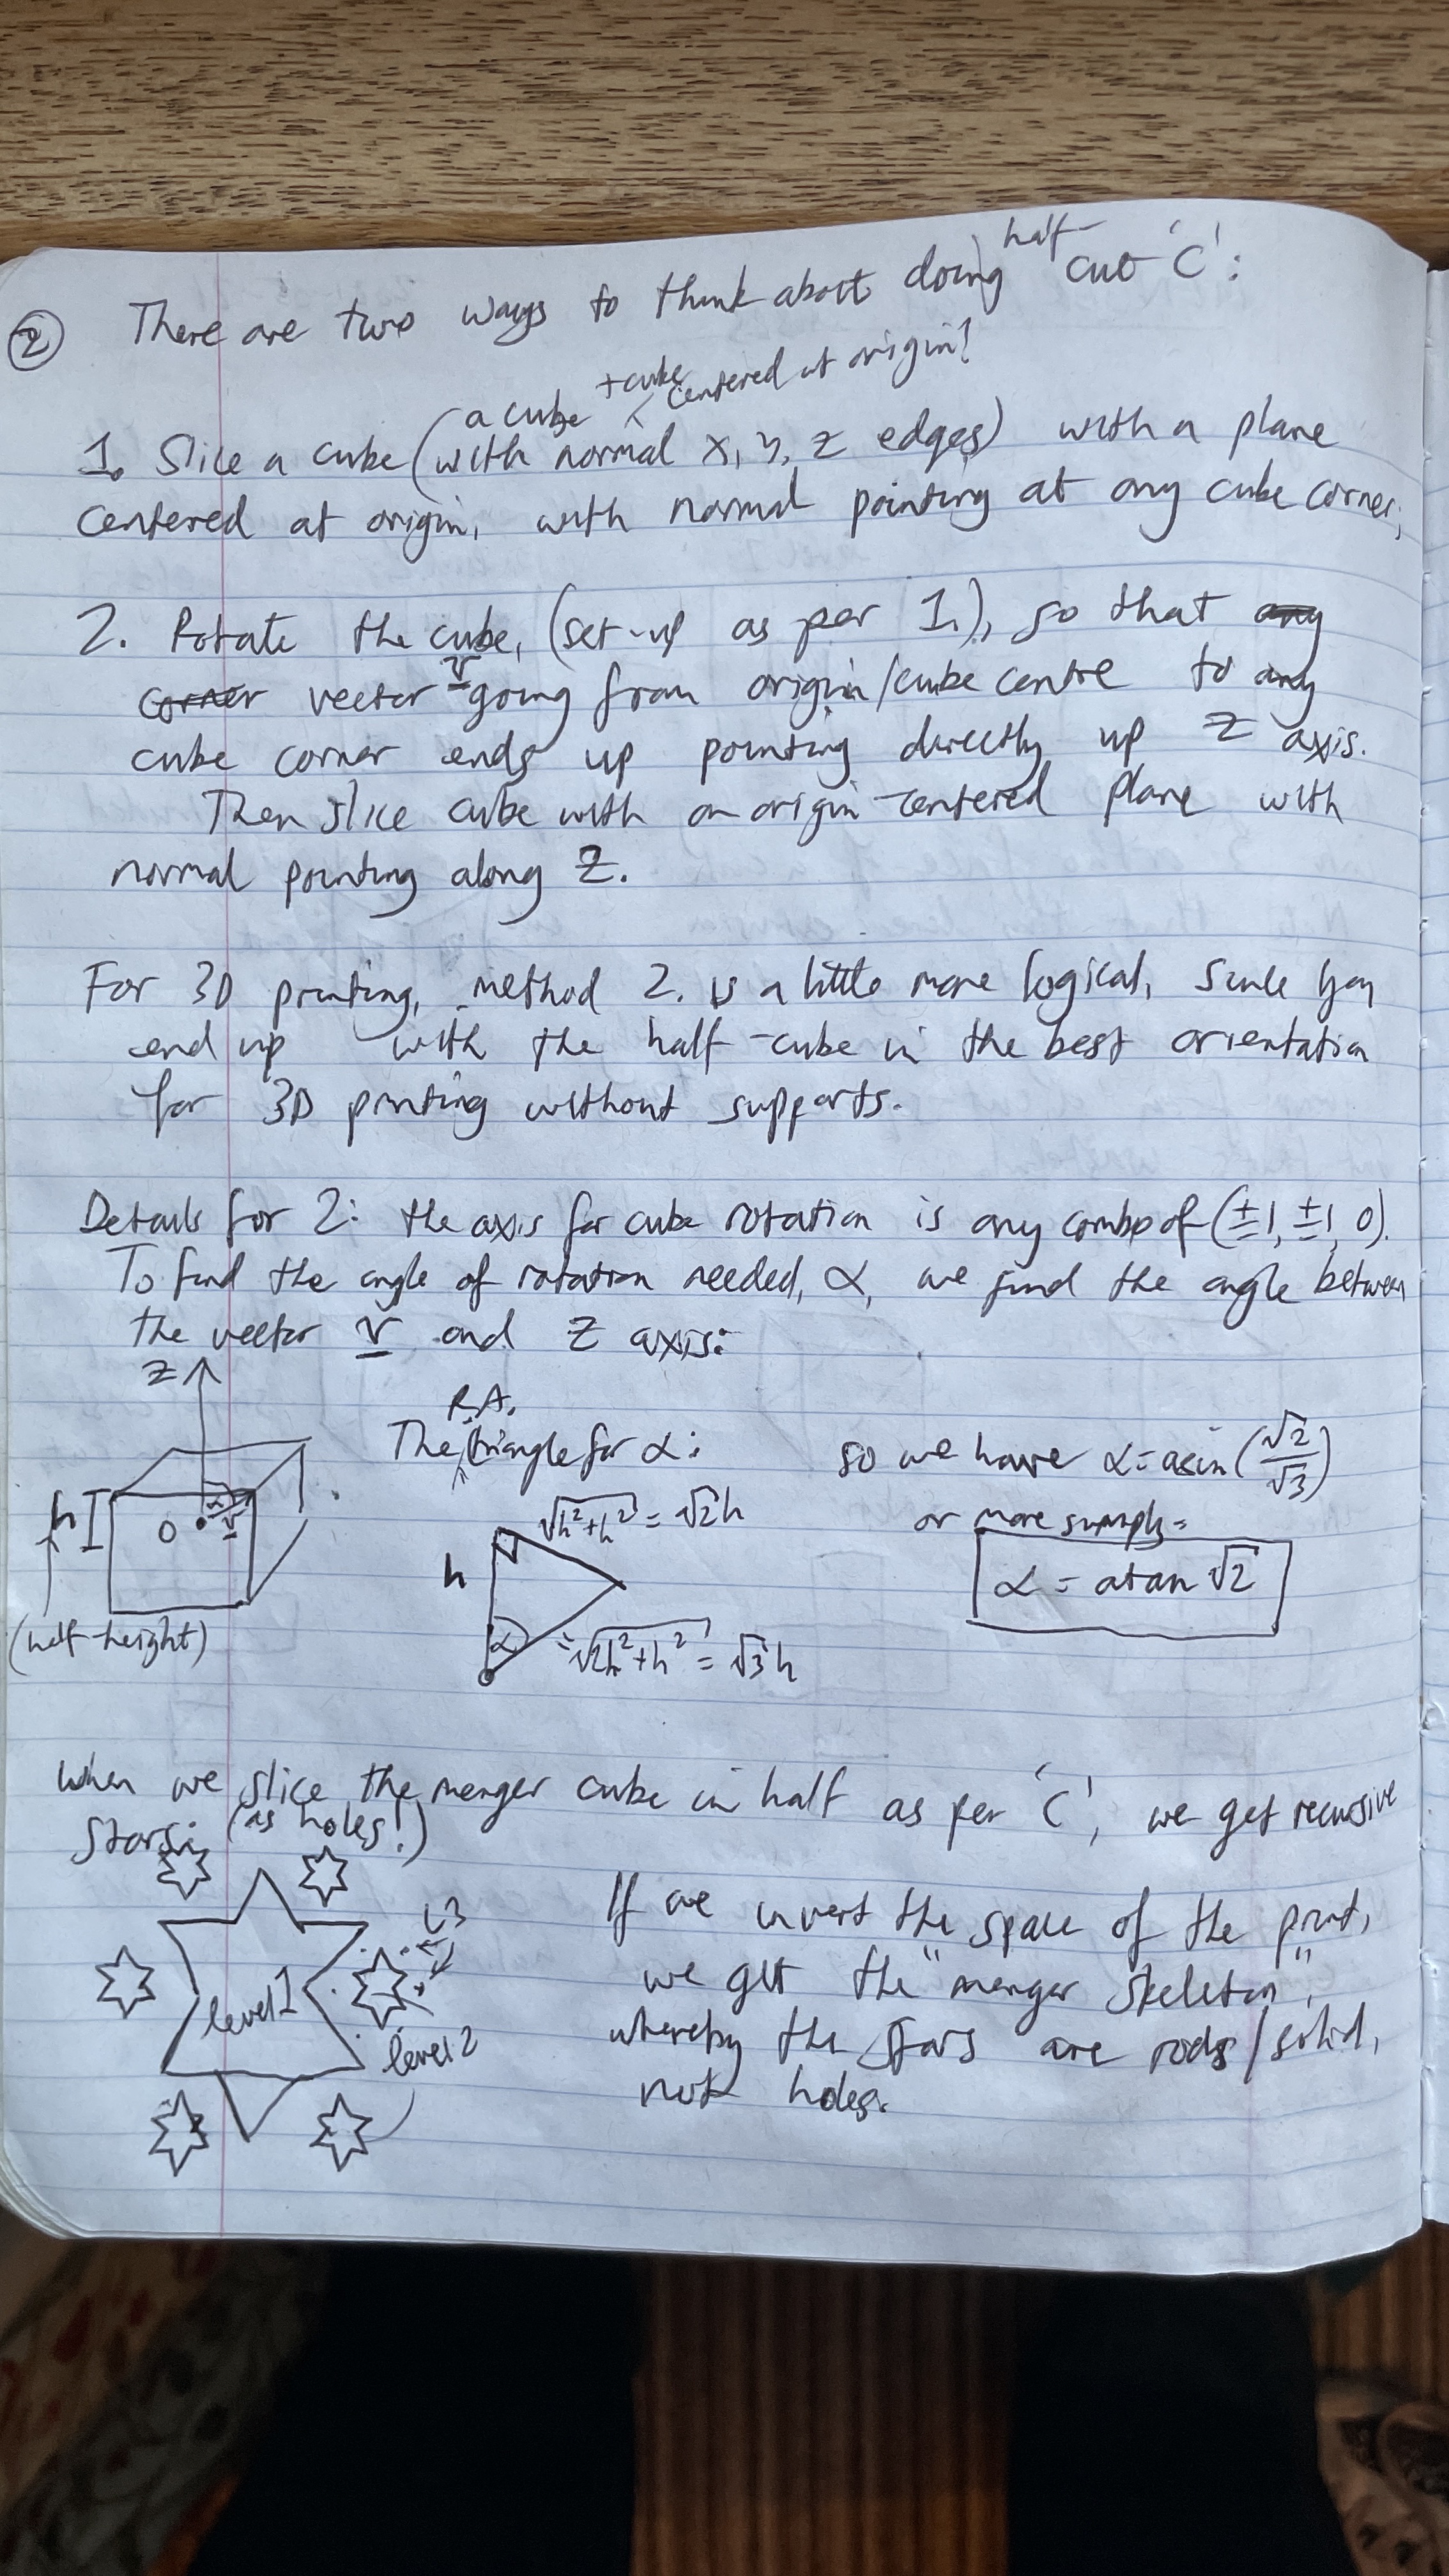 ② There are two ways to think about doing half-cut 'C':
1. Slice a cube (a cube with normal x, y, z edges + cube centered at origin) with a plane
centered at origin, with normal pointing at any cube corner,
2. Rotate the cube, (set-up as per 1.), so that any
corner vector v going from origin/cube centre to any
cube corner ends up pointing directly up Z axis.
Then slice cube with an origin-centered plane with
normal pointing along Z.
For 3D printing, method 2. is a little more logical, since you
end up with the half-cube in the best orientation
for 3D printing without supports.
Details for 2: the axis for cube rotation is any combo of (±1, ±1, 0).
To find the angle of rotation needed, α, we find the angle between
the vector v and Z axis:
Z
h
O
α
v
(half-height)
The R.A. triangle for α:
√h²+h² = √2h
h
α
=√2h²+h² = √3h
so we have α = asin(√2/√3)
or more simply =
α = atan √2
When we slice the menger cube in half as per 'C', we get recursive
stars: (as holes!)
level 1
L3
level 2
If we invert the space of the print,
we get the "menger skeleton",
whereby the stars are rods/solid,
not holes.